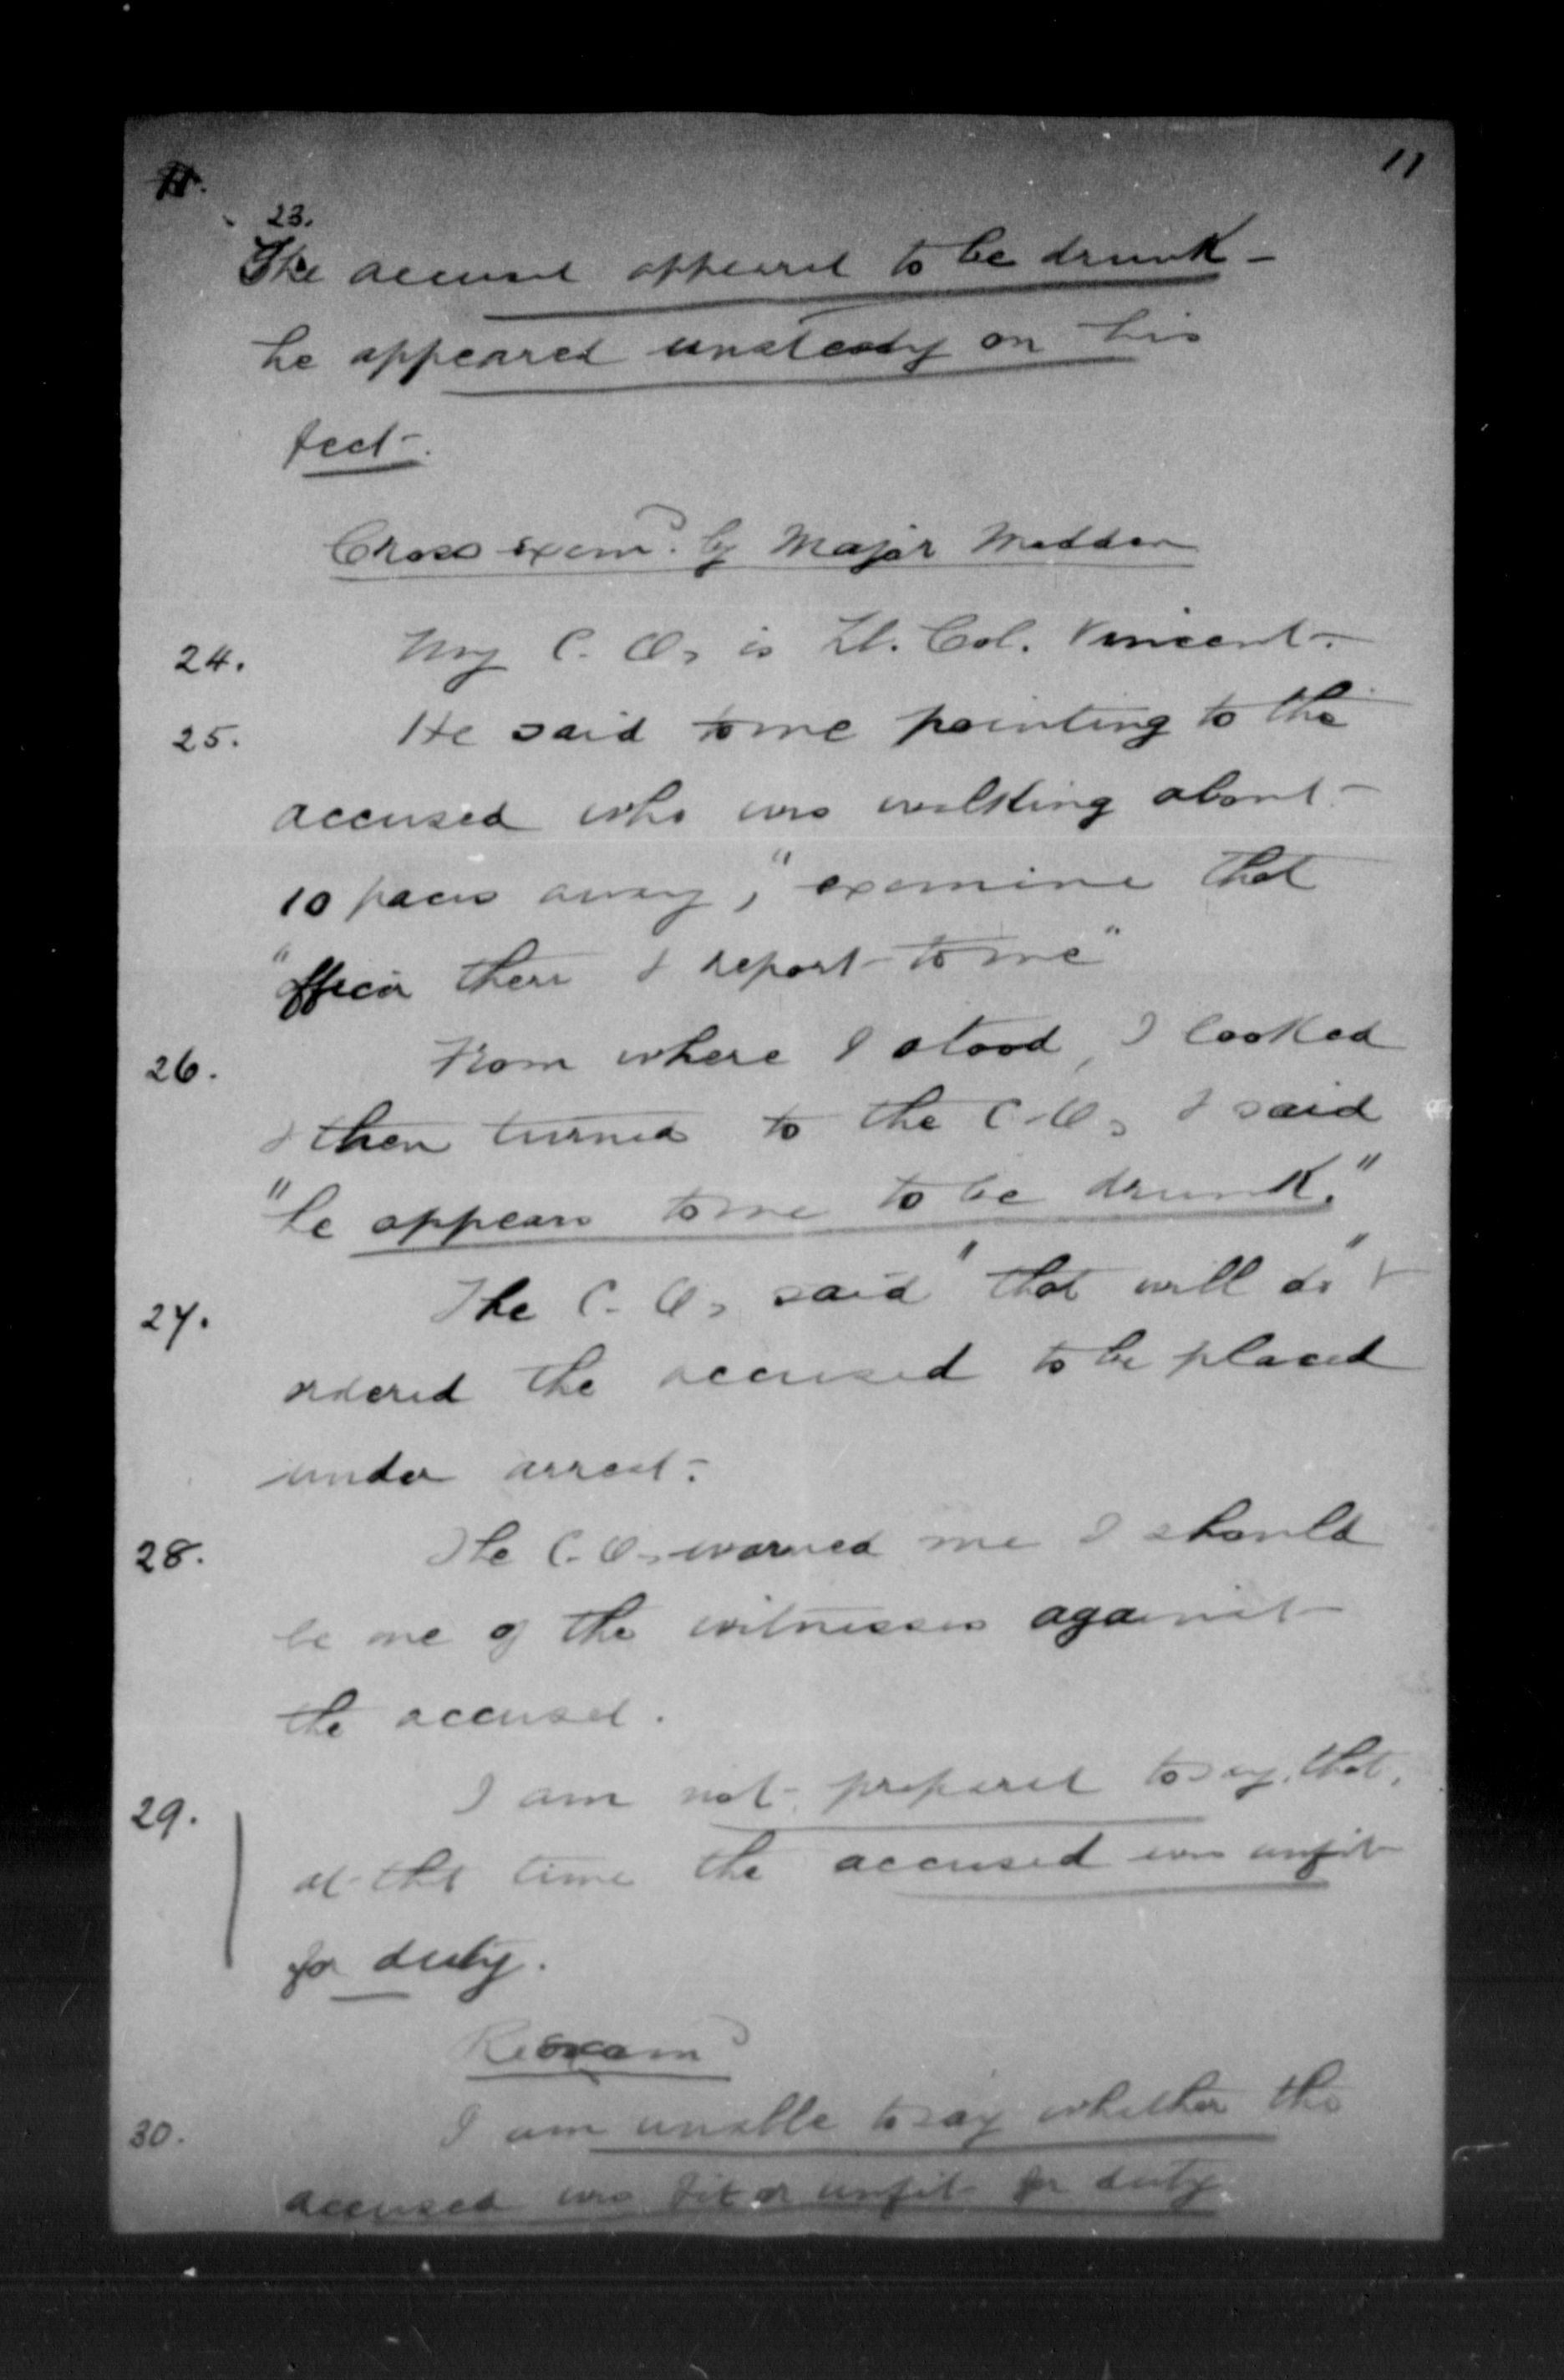 11
23.
The accused appeared to be drunk -
he appeared unsteady on his
feet -.
Cross exam^d. by Major Madden
24. My C. O. is Lt. Col. Vincent -.
25. He said to me pointing to the
accused who was walking about -
10 paces away, "examine that
"officer there & report to me"
26. From where I stood, I looked
& then turned to the C. O. & said
"he appears to me to be drunk."
27. The C. O. said "that will do" &
ordered the accused to be placed
under arrest -.
28. The C. O. warned me I should
be one of the witnesses against
the accused.
29. I am not prepared to say, that,
at that time the accused was unfit
for duty.
Reexam^d
30. I am unable to say whether the
accused was fit or unfit for duty.